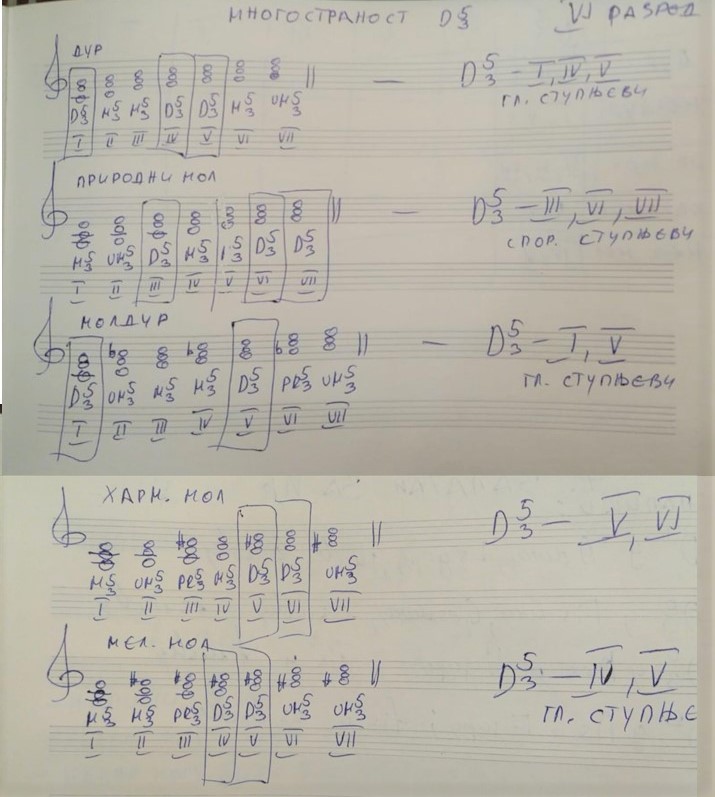 МНОГОСТРАНОСТ D5/3 VI РАЗРЕД
ДУР
D5/3 M5/3 M5/3 D5/3 D5/3 M5/3 UM5/3 — D5/3 – I, IV, V
I II III IV V VI VII ГЛ. СТУПЊЕВИ
ПРИРОДНИ МОЛ
M5/3 UM5/3 D5/3 M5/3 D5/3 D5/3 — D5/3 – III, VI, VII
I II III IV V VI VII СПОР. СТУПЊЕВИ
МОЛДУР
D5/3 UM5/3 M5/3 M5/3 D5/3 PR5/3 UM5/3 — D5/3 – I, V
I II III IV V VI VII ГЛ. СТУПЊЕВИ
ХАРМ. МОЛ
M5/3 UM5/3 PR5/3 M5/3 D5/3 D5/3 UM5/3 D5/3 – V, VI
I II III IV V VI VII
МЕЛ. МОЛ
M5/3 M5/3 PR5/3 D5/3 D5/3 UM5/3 UM5/3 D5/3 – IV, V
I II III IV V VI VII ГЛ. СТУПЊЕ